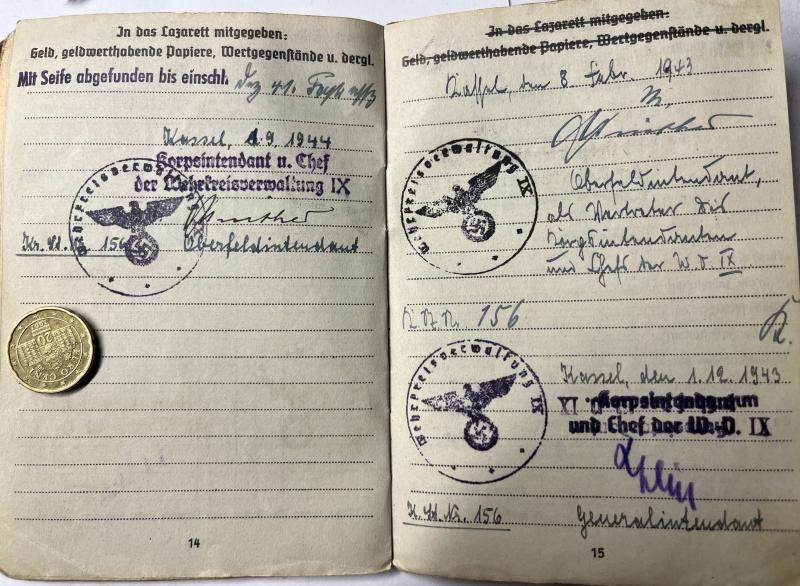 In das Lazarett mitgegeben:
Geld, geldwerthabende Papiere, Wertgegenstände u. dergl.
Mit Seife abgefunden bis einschl. Dez 41.
Kassel, 1.9.1944
Korpsintendant u. Chef
der Wehrkreisverwaltung IX
Wehrkreisverwaltung IX
156 Oberfeldintendant
20
EURO CENT
14
In das Lazarett mitgegeben:
Geld, geldwerthabende Papiere, Wertgegenstände u. dergl.
Kassel, den 8 Febr. 1943
Wehrkreisverwaltung IX
Oberfeldintendant,
als Vertreter des
Korpsintendanten
und Chefs der W.V. IX
156
Kassel, den 1.12.1943
Korpsintendant
und Chef der W.V. IX
Wehrkreisverwaltung IX
K. St. Nr. 156 Generalintendant
15